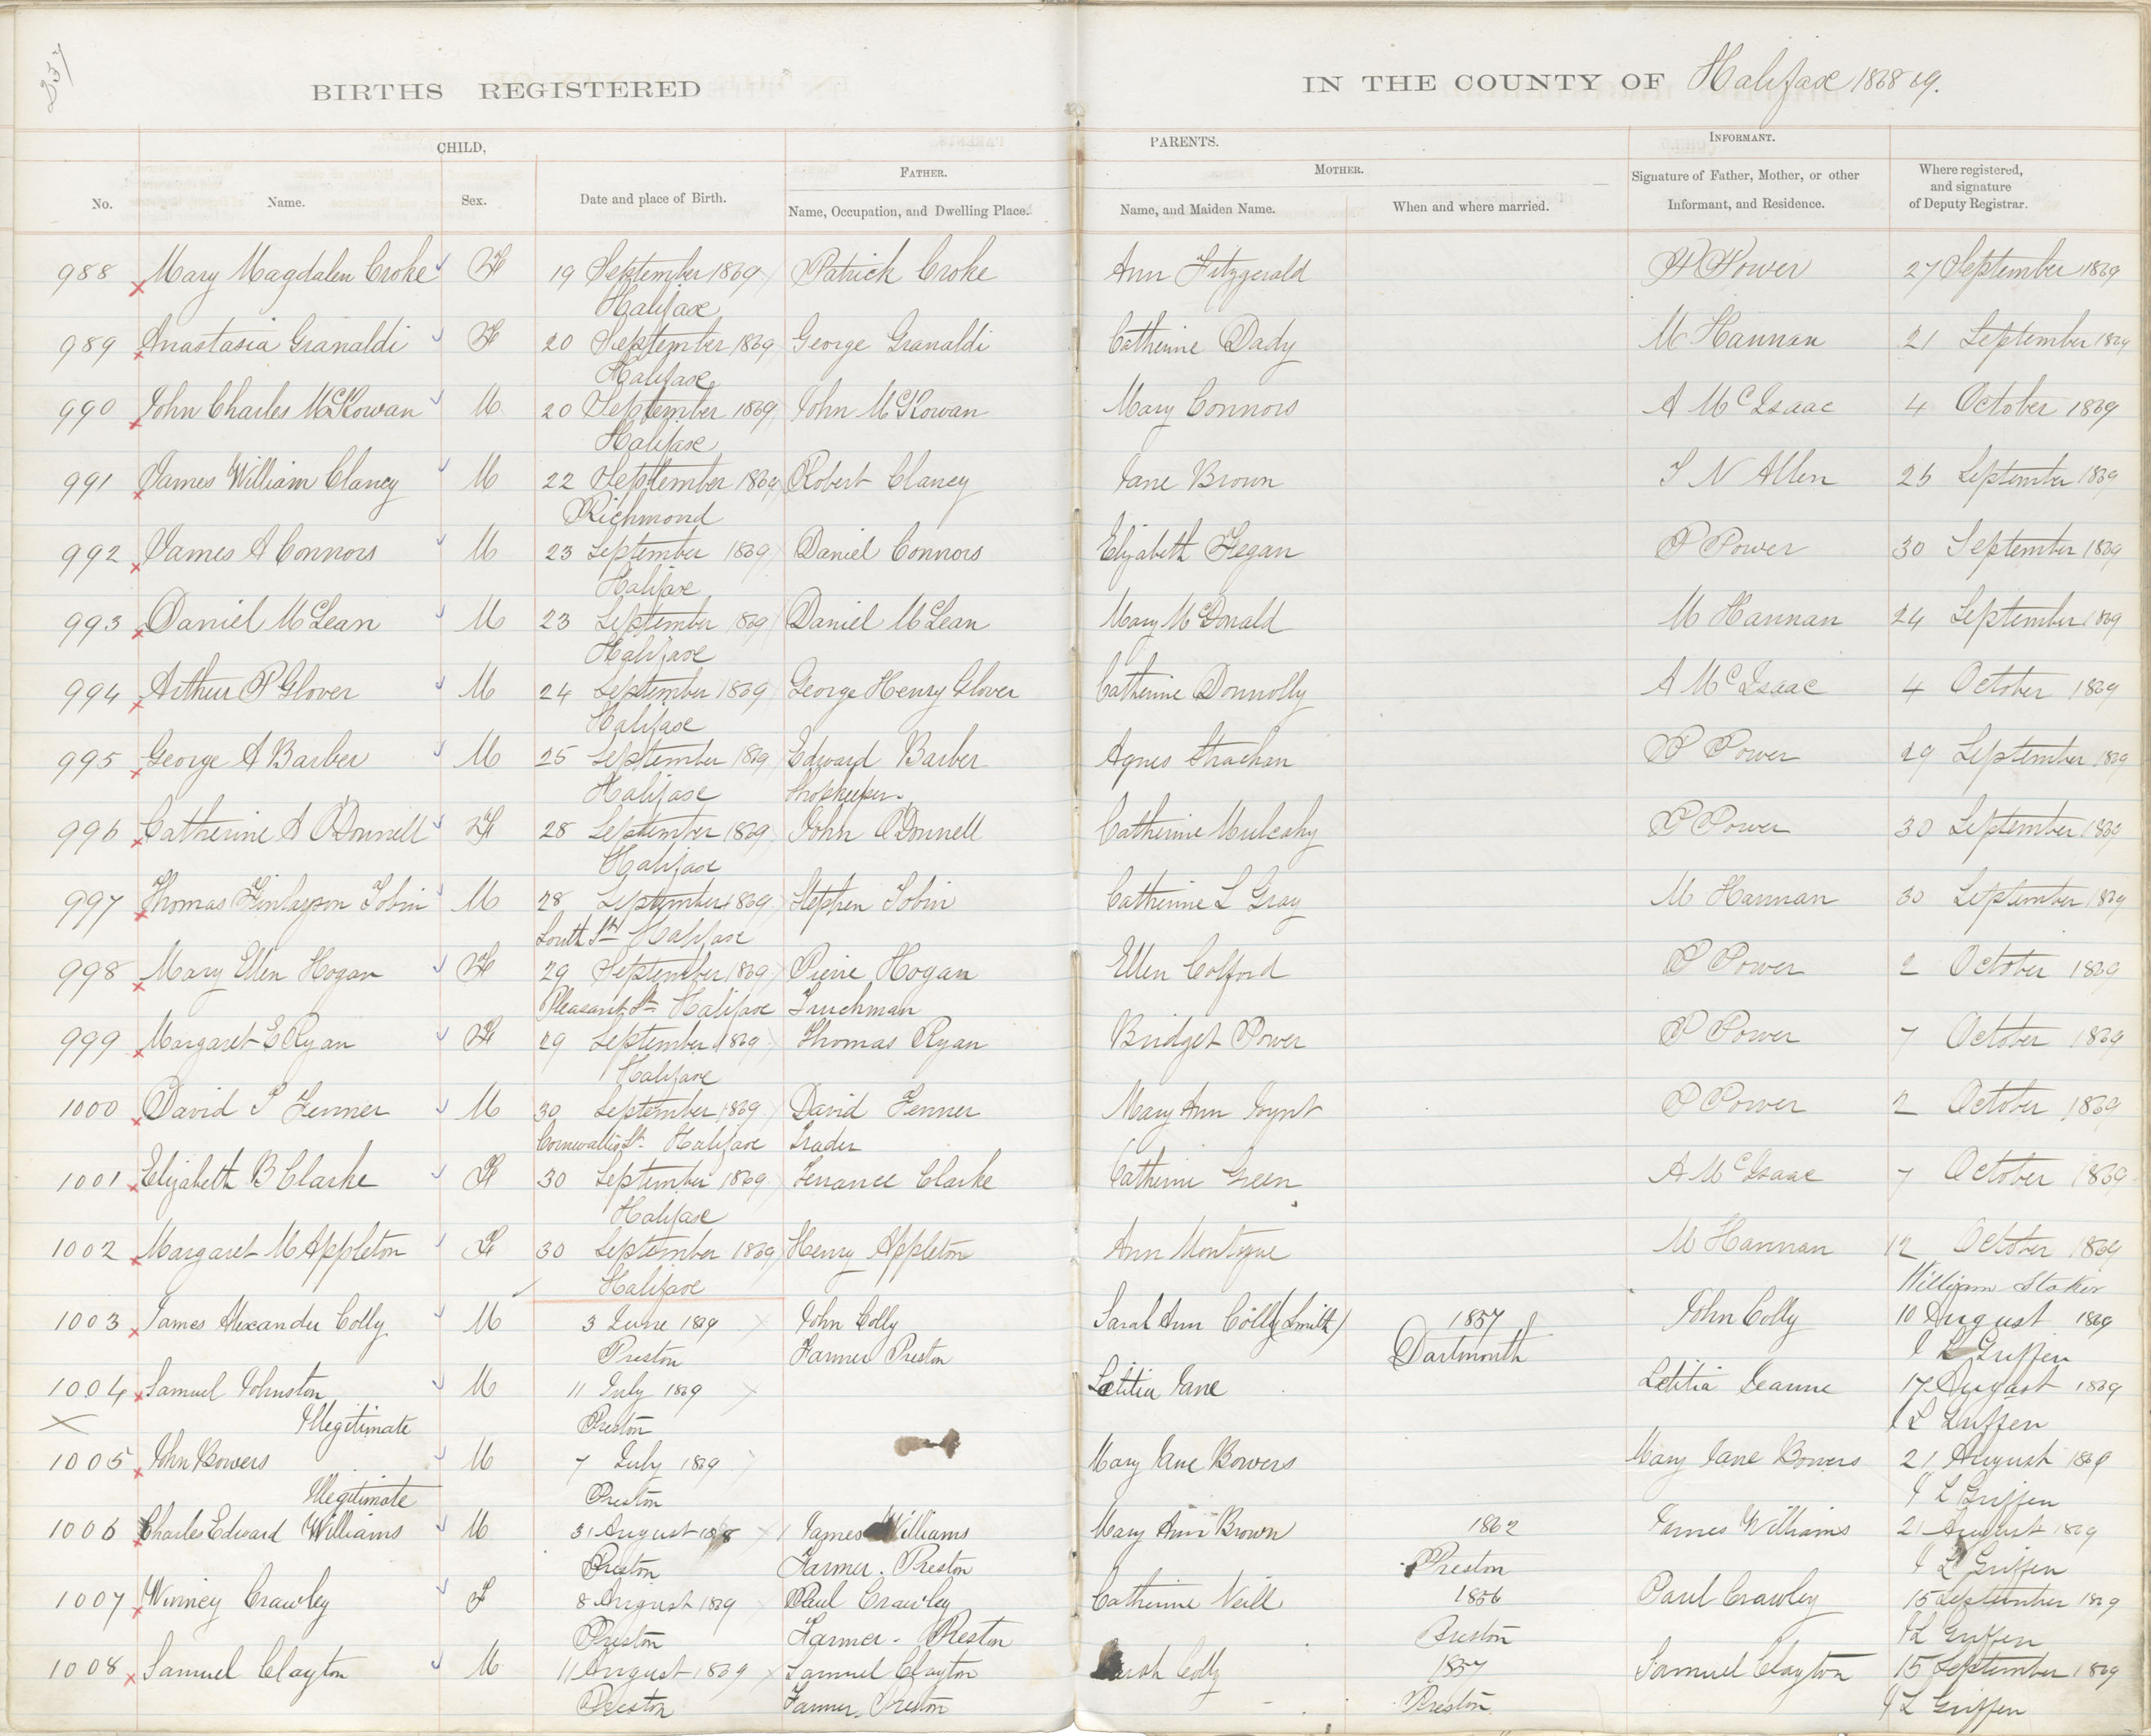 237
BIRTHS REGISTERED
IN THE COUNTY OF Halifax 1868 69.
CHILD,
PARENTS.
INFORMANT.
FATHER.
MOTHER.
No.
Name.
Sex.
Date and place of Birth.
Name, Occupation, and Dwelling Place.
Name, and Maiden Name.
When and where married.
Signature of Father, Mother, or other
Informant, and Residence.
Where registered,
and signature
of Deputy Registrar.
988 Mary Magdalen Croke F 19 September 1869 Patrick Croke Ann Fitzgerald P Power 27 September 1869
Halifax
989 Anastasia Granaldi F 20 September 1869 George Granaldi Catherine Dady M Hannan 21 September 1869
Halifax
990 John Charles McKowan M 20 September 1869 John McKowan Mary Connors A McIsaac 4 October 1869
Halifax
991 James William Clancy M 22 September 1869 Robert Clancy Jane Brown J N Allen 26 September 1869
Richmond
992 James A Connors M 23 September 1869 Daniel Connors Elizabeth Fegan P Power 30 September 1869
Halifax
993 Daniel McLean M 23 September 1869 Daniel McLean Mary McDonald M Hannan 24 September 1869
Halifax
994 Arthur P Glover M 24 September 1869 George Henry Glover Catherine Donnolly A McIsaac 4 October 1869
Halifax
995 George A Barber M 25 September 1869 Edward Barber Agnes Strachan P Power 29 September 1869
Halifax Shopkeeper.
996 Catherine A O'Donnell F 28 September 1869 John O'Donnell Catherine Mulcahy P Power 30 September 1869
Halifax
997 Thomas Finlayson Tobin M 28 September 1869 Stephen Tobin Catherine L Gray M Hannan 30 September 1869
South St Halifax
998 Mary Ellen Hogan F 29 September 1869 Pierre Hogan Ellen Colford P Power 2 October 1869
Pleasant St Halifax Truckman
999 Margaret E Ryan F 29 September 1869 Thomas Ryan Bridget Power P Power 7 October 1869
Halifax
1000 David P Fenner M 30 September 1869 David Fenner Mary Ann Joynt P Power 2 October 1869
Cornwallis St. Halifax Trader
1001 Elizabeth B Clarke F 30 September 1869 Terrance Clarke Catherine Green A McIsaac 7 October 1869
Halifax
1002 Margaret M Appleton F 30 September 1869 Henry Appleton Ann Montague M Hannan 12 October 1869
Halifax William
1003 James Alexander Colly M 3 June 1869 John Colly Sarah Ann Colly (Smith) 1857 John Colly 10 August 1869
Preston Farmer Preston Dartmouth J L Griffen
1004 Samuel Johnston M 11 July 1869 Letitia Jane Letitia Jeanne 17 August 1869
Illegitimate Preston J L Griffen
1005 John Bowers M 7 July 1869 Mary Jane Bowers Mary Jane Bowers 21 August 1869
Illegitimate Preston J L Griffen
1006 Charles Edward Williams M 31 August 1868 James Williams Mary Ann Brown 1862 James Williams 21 August 1869
Preston Farmer. Preston Preston J L Griffen
1007 Winney Crawley F 8 August 1869 Paul Crawley Catherine Neill 1856 Paul Crawley 15 September 1869
Preston Farmer. Preston Preston J L Griffen
1008 Samuel Clayton M 11 August 1869 Samuel Clayton Sarah Colly 1857 Samuel Clayton 15 September 1869
Preston Farmer. Preston Preston J L Griffen